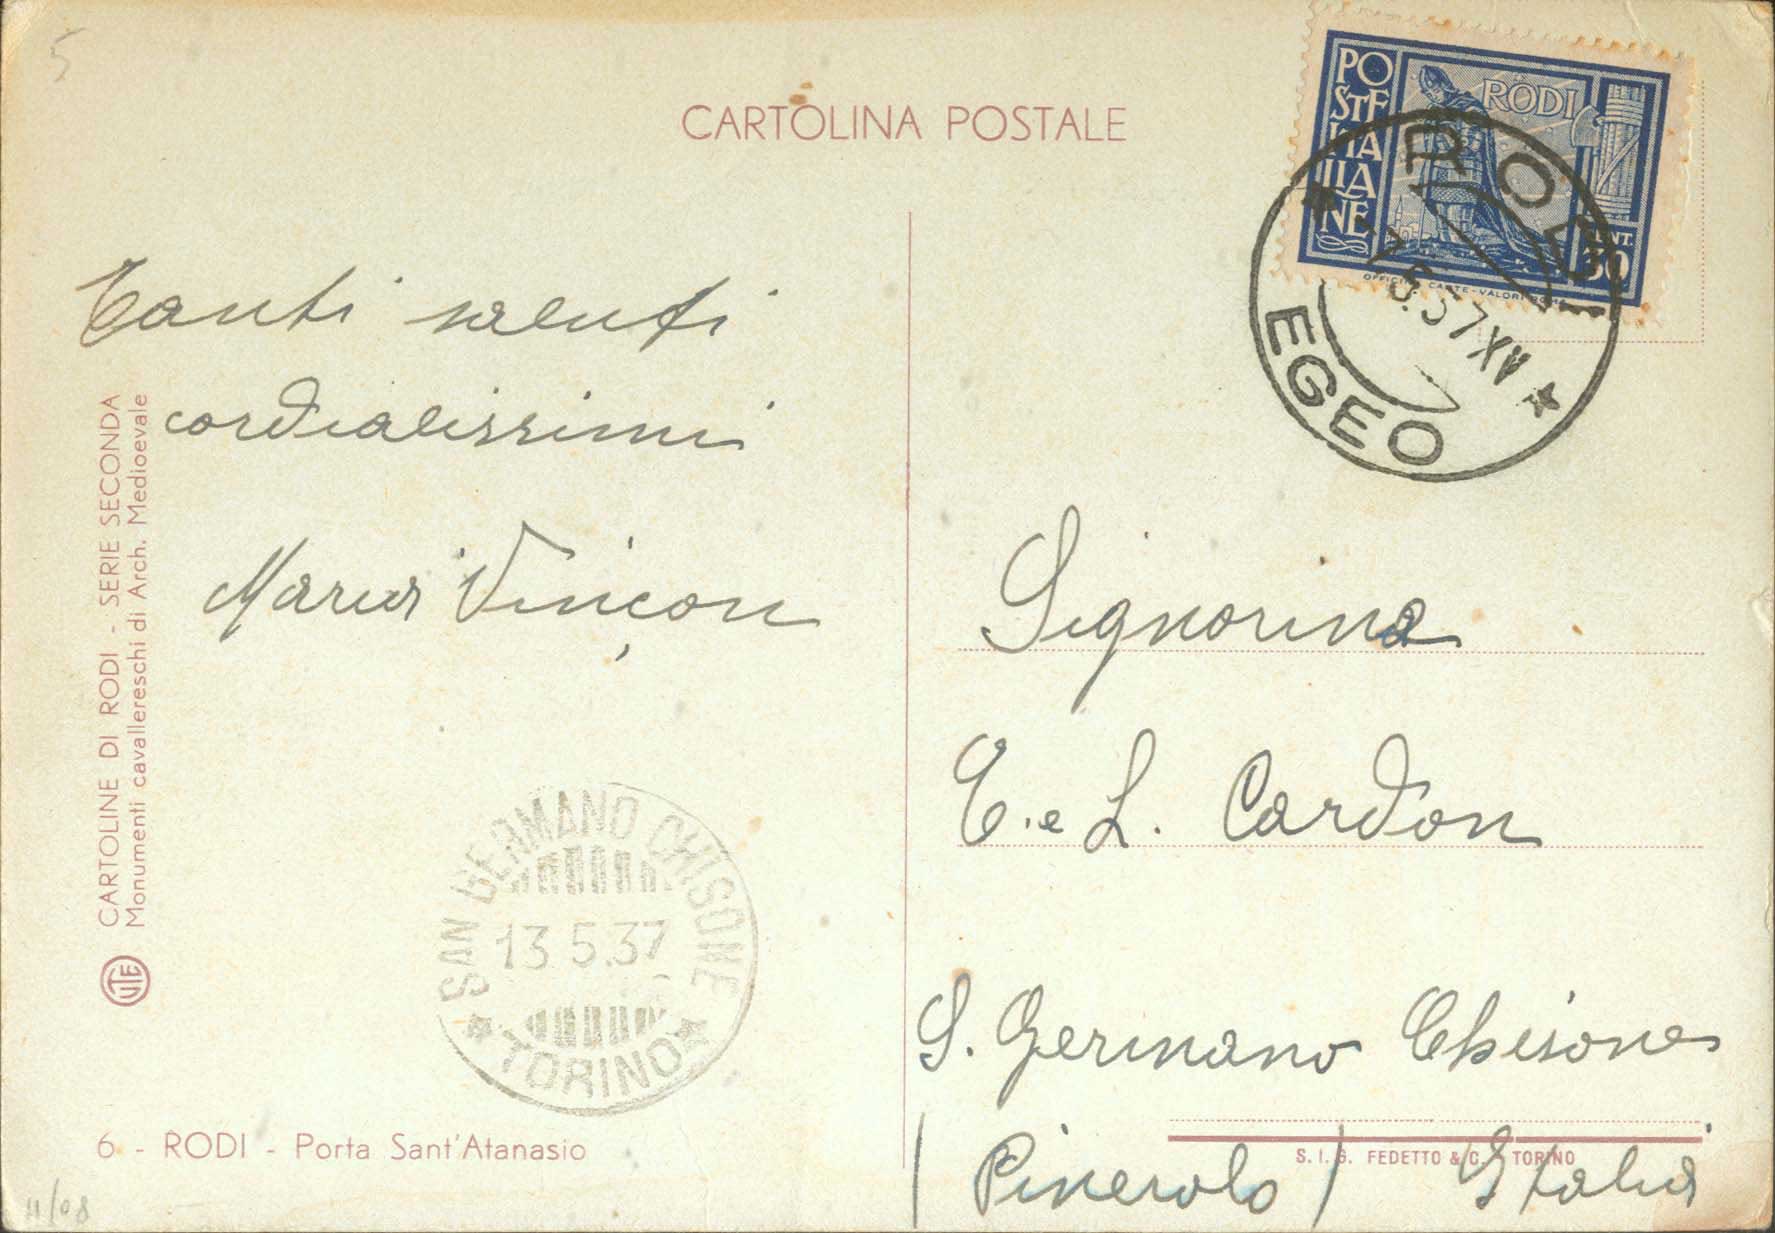 5
CARTOLINA POSTALE
POSTE ITALIANE
RODI
CENT. 30
OFFICINA CARTE-VALORI ROMA
RODI
5.37 XV
EGEO
Tanti saluti
cordialissimi
Maria Vinçon
CARTOLINE DI RODI - SERIE SECONDA
Monumenti cavallereschi di Arch. Medioevale
UTE
SAN GERMANO CHISONE
13 5.37
TORINO
6 - RODI - Porta Sant'Atanasio
11/08
Signorina
E. e L. Cardon
S. Germano Chisone
(Pinerolo) Italia
S.I.G. FEDETTO & C. - TORINO